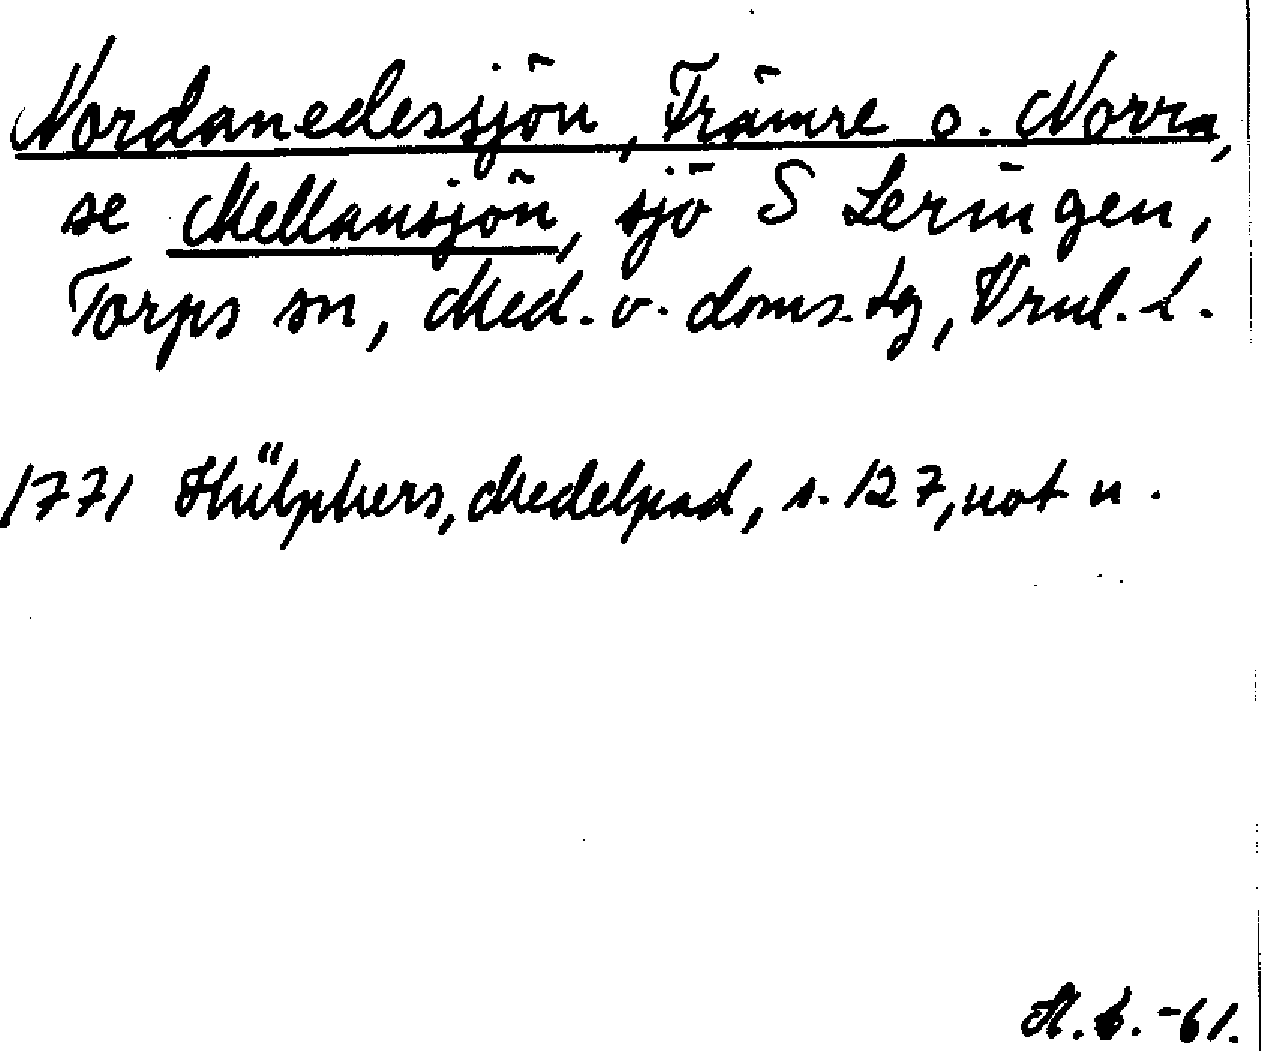 Nordanedessjön, Främre o. Norra,
se Mellansjön, sjö S Leringen,
Torps sn, Med. v. doms. tg, Vrnl. l.
1771 Hülphers, Medelpad, s. 127, not n.
-61.